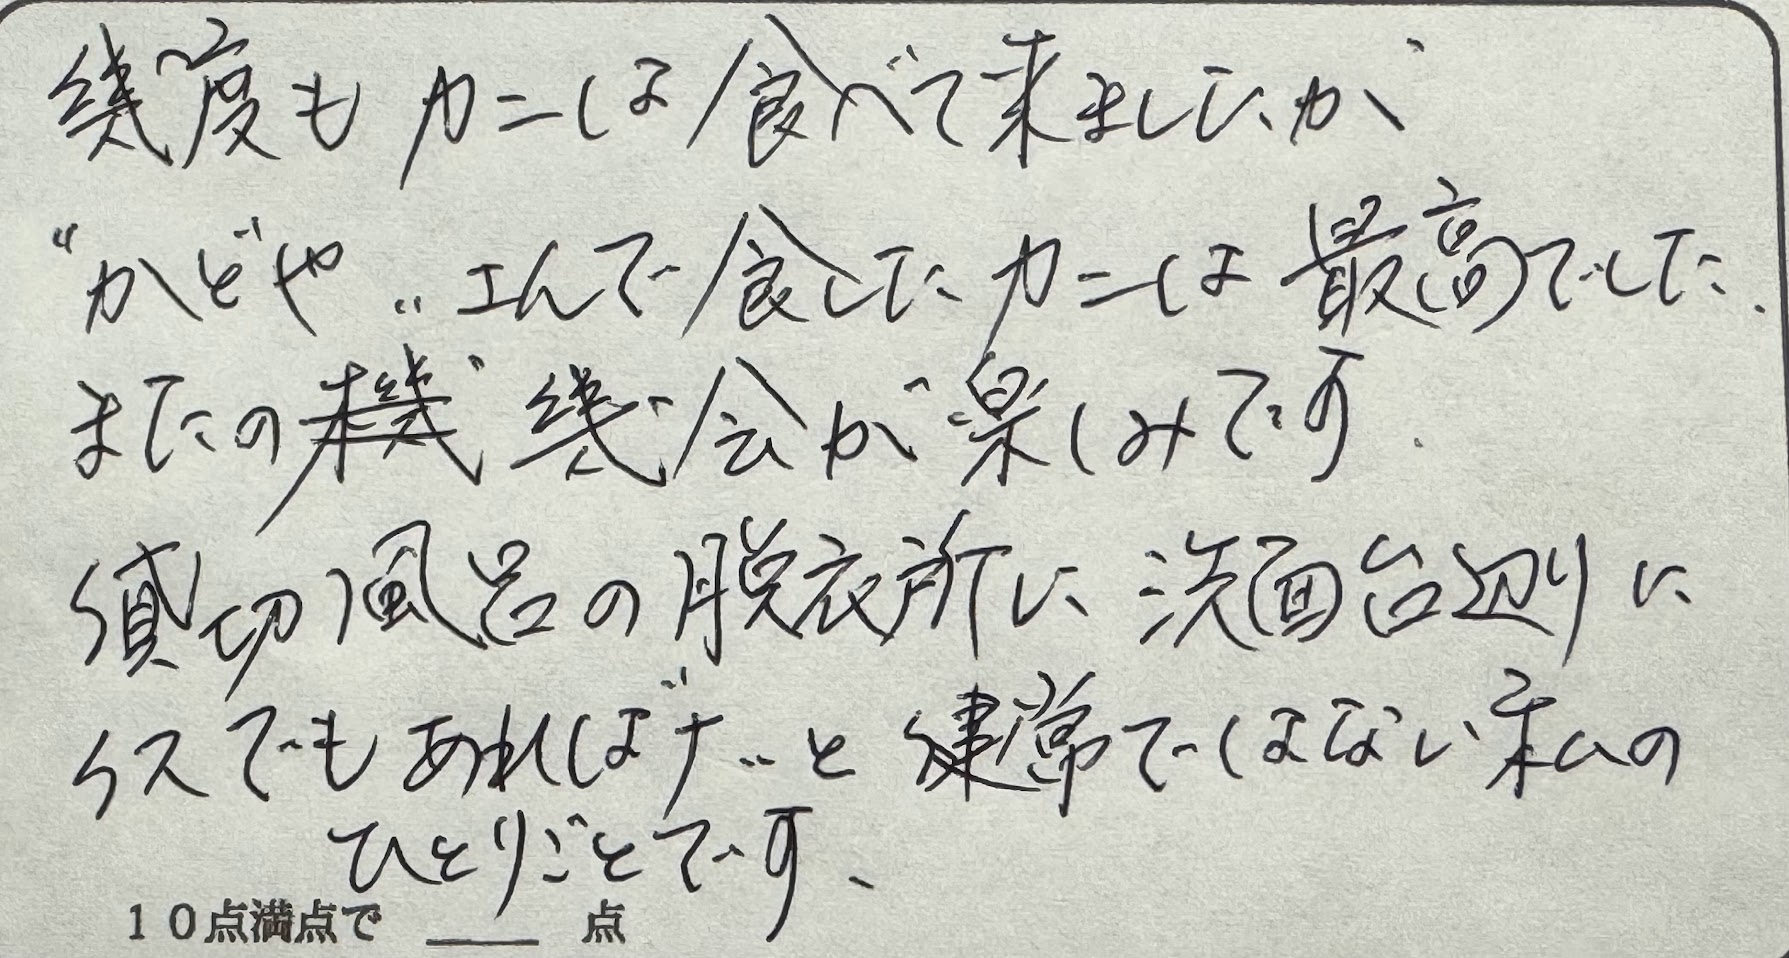 幾度もカニは食べて来ましたが
"かどや"さんで食したカニは最高でした.
またの機幾会が楽しみです.
貸切風呂の脱衣所に洗面台辺りに
イスでもあれば"ナ"と健常ではない私の
ひとりごとです、
10点満点で 点